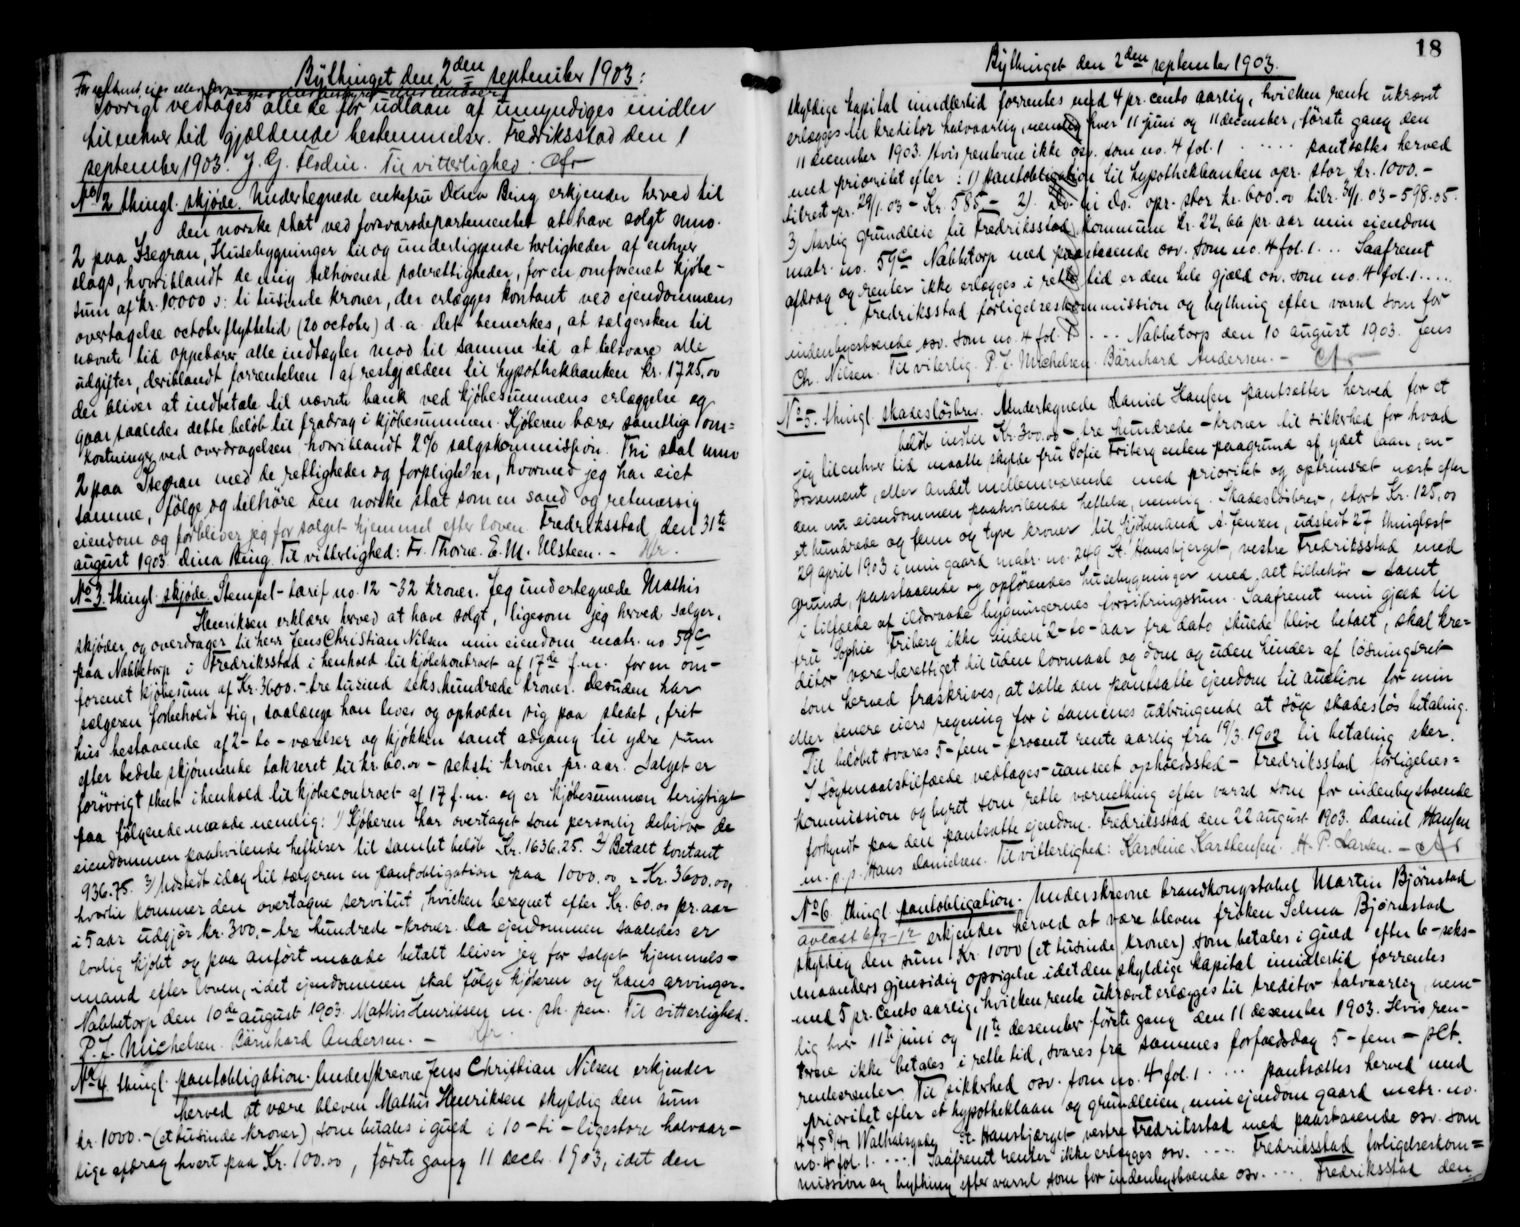 Bÿthinget den 2den september 1903:
Iøvrigt vedtages alle de for udlaan af umyndiges midler
til enhver tid gjældende bestemmelser. Fredriksstad den 1
september 1903. J. G. Flodin. Til vitterlighed:
No 2 thingl. skjøde. Undertegnede enkefru Dina Bing erkjender herved til
den norske stat ved forsvarsdepartementet at have solgt mno.
2 paa Isegran, Husebygninger til og underliggende herligheder af enhver
slags, hvoriblandt de mig tilhørende paterettigheder, for en omforenet kjøbe-
sum af Kr. 10000 ɔ: ti tusinde kroner, der erlægges kontant ved ejendommens
overtagelse october flyttetid (20 october) d. a. Det bemerkes, at sælgersken til
nævnte tid oppebærer alle indtægter mod til samme tid at tilsvare alle
udgifter, deriblandt forrentelsen af restgjælden til hypothekbanken kr. 1725,00
der bliver at indbetale til nævnte bank ved kjøbesummens erlæggelse og
gaar saaledes dette beløb til fradrag i kjøbesummen. Kjøberen bærer samtlige om-
kostninger ved overdragelsen hvoriblandt 2% salgskommission. Thi skal mno
2 paa Isegran med de rettigheder og forpligtelser, hvormed jeg har eiet
samme, følge og tilhøre den norske stat som en sand og retmæssig
eiendom og forbliver jeg for salget hjemmel efter loven. Fredriksstad den 31te
august 1903. Dina Bing. Til vitterlighed: Fr. Thorne. E. M. Ulsteen. -
No 3. thingl. skjøde. Stempel-tarif no. 12 - 32 kroner. Jeg undertegnede Mathis
Henriksen erklærer herved at have solgt, ligesom jeg herved sælger,
skjøder og overdrager til herr Jens Christian Nilsen min eiendom matr. no. 59c
paa Nabbetorp i Fredriksstad i henhold til kjøbekontract af 17de f.m. for en om-
forenet kjøbesum af Kr. 3600.- tre tusind seks hundrede kroner. Desuden har
sælgeren forbeholdt sig, saalænge han lever og opholder sig paa stedet, frit
hus bestaaende af 2 - to - værelser og kjøkken samt adgang til ydre rum
efter bedste skjønnende takseret til kr. 60.00 - seksti kroner pr. aar. Salget er
forøvrigt skeet i henhold til kjøbecontract af 17 f.m. og er kjøbesummen berigtiget
paa følgende maade nemlig: 1) Kjøberen har overtaget som personlig debitor de
eiendommen paahvilende heftelser til samlet beløb Kr. 1636.25. 2) Betalt kontant
936.75. 3) Udstedt idag til sælgeren en pantobligation paa 1000.00 = Kr. 3600.00,
hvortil kommer den overtagne servitut, hvilken beregnet efter Kr. 60.00 pr. aar
i 5 aar udgjør kr. 300.- tre hundrede - kroner. Da ejendommen saaledes er
lovlig kjøbt og paa anført maade betalt bliver jeg for salget hjemmels-
mand efter loven, idet ejendommen skal følge kjøberen og hans arvinger.
Nabbetorp den 10de august 1903. Mathis Henriksen m. ph. pen. Til vitterlighed.
P. J. Michelsen. Bärnhard Andersen. -
No 4. thingl. pantobligation. Underskrevne Jens Christian Nilsen erkjender
herved at være bleven Mathis Henriksen skyldig den sum
kr. 1000.- (et tusinde kroner), som betales i gjæld i 10 - ti - ligestore halvaar-
lige afdrag hvert paa Kr. 100.00, første gang 11 decbr. 1903, idet den
18
Bÿthinget den 2den september 1903.
skyldige kapital imidlertid forrentes med 4 pr. cento aarlig, hvilken rente ukrævet
erlægges til kreditor halvaarlig, nemlig hver 11 juni og 11 december, første gang den
11 december 1903. Hvis renterne ikke osv. som no. 4 fol. 1 ..... pantsættes herved
med prioritet efter: 1) pantobligation til hypothekbanken opr. stor kr. 1000.-
tilrest pr. 29/1.03 - Kr. 585 - 2). Do. til do. opr. stor kr. 600.00 tilr. 30/1.03 - 598.05.
3) Aarlig grundleie til Fredriksstad kommune kr. 22,66 pr aar min ejendom
matr. no. 59c Nabbetorp med paastaaende osv. som no. 4 fol. 1 ... Saafremt
afdrag og renter ikke erlægges i rette tid er den hele gjæld osv. som no. 4 fol. 1 ....
Fredriksstad forligelseskommission og bything efter varsel som for
indenbysboende osv. som no. 4 fol. 1 .... Nabbetorp den 10 august 1903. Jens
Chr. Nilsen. Til viterlig. P. J. Michelsen. Bärnhard Andersen. -
No 5. thingl. skadesløsbrev. Undertegnede Daniel Hansen pantsætter herved for et
beløb indtil Kr. 300.00 - tre hundrede - kroner til sikkerhed for hvad
jeg til enhver tid maatte skylde fru Sofie Friberg enten paagrund af ydet laan, en-
dossement, eller andet mellemværende med prioritet og optrinsret næst efter
den nu eiendommen paahvilende heftelse, nemlig. Skadesløsbrev, stort Kr. 125,00
et hundrede og fem og tyve kroner til Kjøbmand A. Jensen, udstedt 27 thinglæst
29 april 1903 i min gaard matr. no. 249 St. Hansbjerget, vestre Fredriksstad med
grund, paastaaende og opførendes husebygninger med alt tilbehør - samt
i tilfælde af ildsvaade bygningernes forsikringssum. Saafremt min gjæld til
fru Sophie Friberg ikke inden 2 - to - aar fra dato skulde blive betalt, skal kre-
ditor være berettiget til uden lovmaal og dom og uden hinder af løsningsret
som herved fraskrives, at sætte den pantsatte ejendom til auction for min
eller senere eiers regning for i sammes udbringende at søge skadesløs betaling.
Til beløbet svares 5 - fem - procent rente aarlig fra 19/3. 1902 til betaling sker.
I søgsmaalstilfælde vedtages - uanseet opholdssted - Fredriksstad forligelses-
kommission og byret som rette værnething efter varsel som for indenbysboende
forkyndt paa den pantsatte ejendom. Fredriksstad den 22 august 1903. Daniel Hansen
m. p. p. Hans Danielsen. Til vitterlighed: Karoline Karstensen. H. P. Larsen. -
No 6. thingl. pantobligation. Underskrevne brandkonstabel Martin Bjørnstad
avlæst 6/9-12 erkjender herved at være bleven frøken Selma Bjørnstad
skyldig den sum Kr. 1000 (et tusinde kroner) som betales i gjæld efter 6 - seks -
maanders gjensidig opsigelse idet den skyldige kapital imidlertid forrentes
med 5 pr. cento aarlig, hvilken rente ukrævet erlægges til kreditor halvaarlig, nem-
lig hver 11te juni og 11te desember første gang den 11 desember 1903. Hvis ren-
terne ikke betales i rette tid, svares fra sammes forfaldsdag 5 - fem - pCt.
rentesrenter. Til sikkerhed osv. som no. 4 fol. 1 .... pantsættes herved med
prioritet efter et hypotheklaan og grundleien, min ejendom gaard matr. no.
Walhalsgaden St. Hansbjerget vestre Fredriksstad med paastaaende osv. som
no. 4 fol. 1 ..... Saafremt renter ikke erlægges osv. ..... Fredriksstad forligelseskom-
mission og bything efter varsel som for indenbysboende osv. .... Fredriksstad den